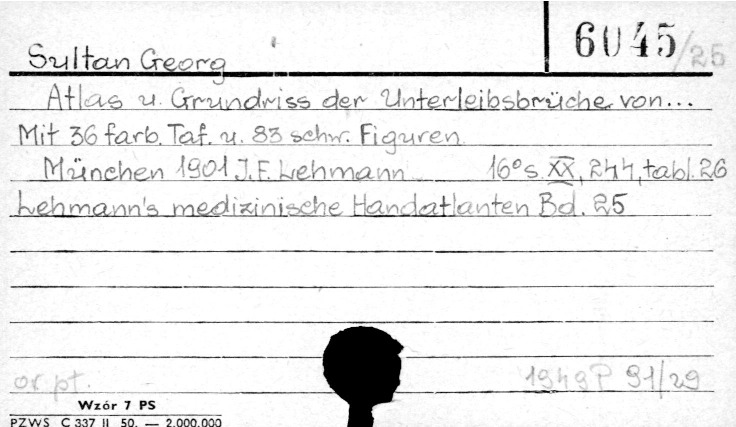 6045/25
Sultan Georg
Atlas u. Grundriss der Unterleibsbrüche von...
Mit 36 farb. Taf. u. 83 schw. Figuren
München 1901 J.F. Lehmann 16° s. XX, 244, tabl. 26
Lehmann's medizinische Handatlanten Bd. 25
or pt. 1949 P 91/29
Wzór 7 PS
PZWS C 337 II 50. — 2.000.000